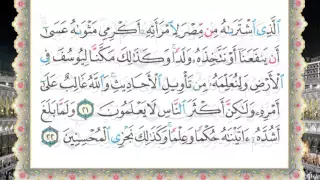 ٱلَّذِى ٱشْتَرَىٰهُ مِن مِّصْرَ لِٱمْرَأَتِهِۦٓ أَكْرِمِى مَثْوَىٰهُ عَسَىٰٓ
أَن يَنفَعَنَآ أَوْ نَتَّخِذَهُۥ وَلَدًا ۚ وَكَذَٰلِكَ مَكَّنَّا لِيُوسُفَ فِى
ٱلْأَرْضِ وَلِنُعَلِّمَهُۥ مِن تَأْوِيلِ ٱلْأَحَادِيثِ ۚ وَٱللَّهُ غَالِبٌ عَلَىٰٓ
أَمْرِهِۦ وَلَٰكِنَّ أَكْثَرَ ٱلنَّاسِ لَا يَعْلَمُونَ ٢١ وَلَمَّا بَلَغَ
أَشُدَّهُۥٓ ءَاتَيْنَٰهُ حُكْمًا وَعِلْمًا ۚ وَكَذَٰلِكَ نَجْزِى ٱلْمُحْسِنِينَ ٢٢